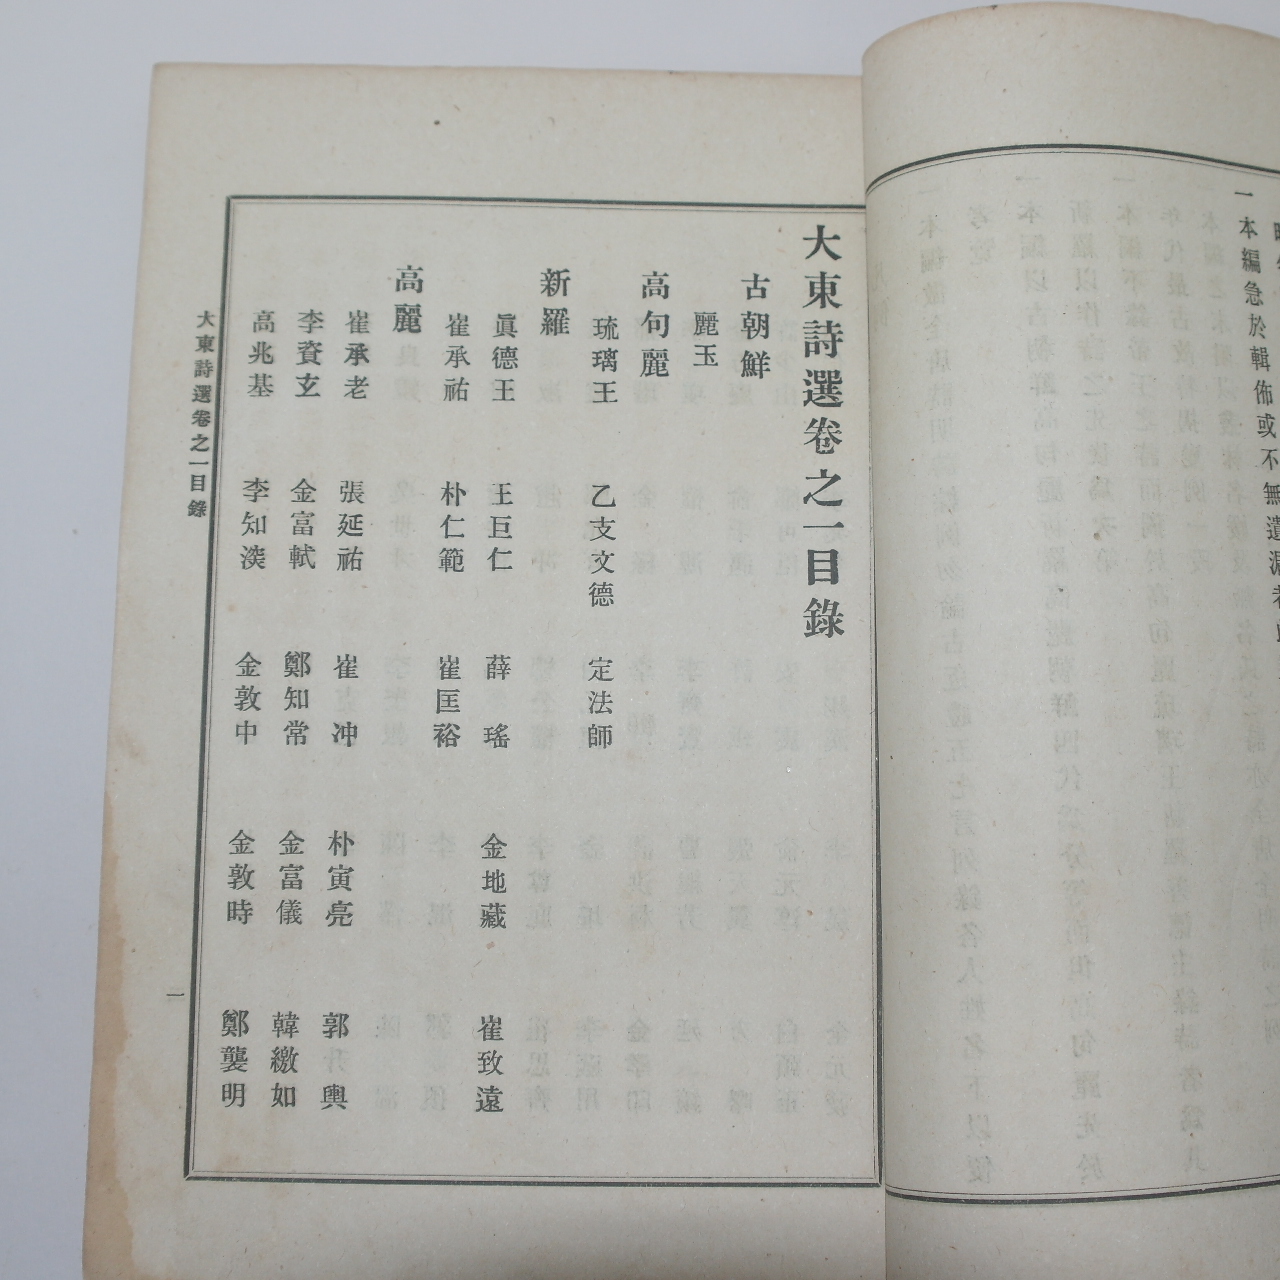 一本編急於輯佈或不無遺漏
大東詩選卷之一目錄
古朝鮮
麗玉
高句麗
琉璃王 乙支文德 定法師
新羅
眞德王 王巨仁 薛瑤 金地藏 崔致遠
崔承祐 朴仁範 崔匡裕
高麗
崔承老 張延祐 崔冲 朴寅亮 郭輿
李資玄 金富軾 鄭知常 金富儀 韓繳如
高兆基 李知深 金敦中 金敦時 鄭襲明
大東詩選卷之一目錄 一